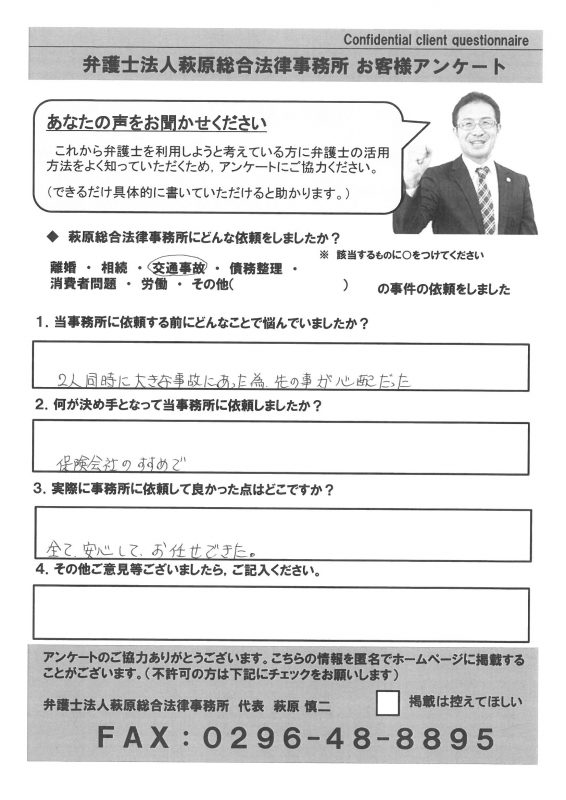 Confidential client questionnaire
弁護士法人萩原総合法律事務所 お客様アンケート
あなたの声をお聞かせください
これから弁護士を利用しようと考えている方に弁護士の活用
方法をよく知っていただくため，アンケートにご協力ください。
（できるだけ具体的に書いていただけると助かります。）
◆ 萩原総合法律事務所にどんな依頼をしましたか？
※ 該当するものに○をつけてください
離婚 ・ 相続 ・ 交通事故 ・ 債務整理 ・
消費者問題 ・ 労働 ・ その他（ ） の事件の依頼をしました
1．当事務所に依頼する前にどんなことで悩んでいましたか？
2人同時に大きな事故にあった為、先の事が心配だった
2．何が決め手となって当事務所に依頼しましたか？
保険会社のすすめで
3．実際に事務所に依頼して良かった点はどこですか？
全て、安心して、お任せできた。
4．その他ご意見等ございましたら，ご記入ください。
アンケートのご協力ありがとうございます。こちらの情報を匿名でホームページに掲載する
ことがございます。（不許可の方は下記にチェックをお願いします）
弁護士法人萩原総合法律事務所 代表 萩原 慎二
掲載は控えてほしい
FAX：0296-48-8895